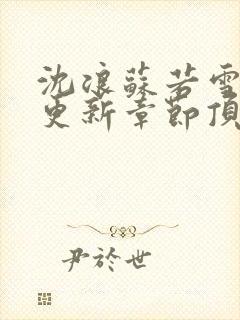 沈浪蘇若雪
更新章節頂
尹於世